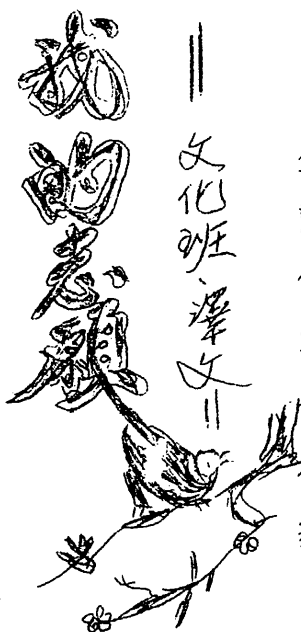 我的志願
文化班、澤文